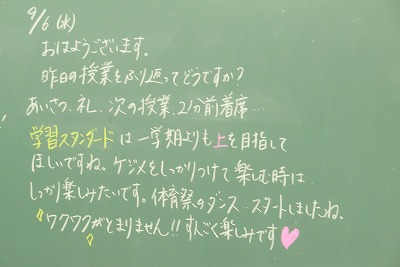 9/6(水)
おはようございます。
昨日の授業をふり返ってどうですか?
あいさつ、礼、次の授業、2分前着席…
学習スタンダードは一学期よりも上を目指して
ほしいですね。ケジメをしっかりつけて楽しむ時は
しっかり楽しみたいです。体育祭のダンス…スタートしましたね。
ワクワクがとまりません!!すんごく楽しみです